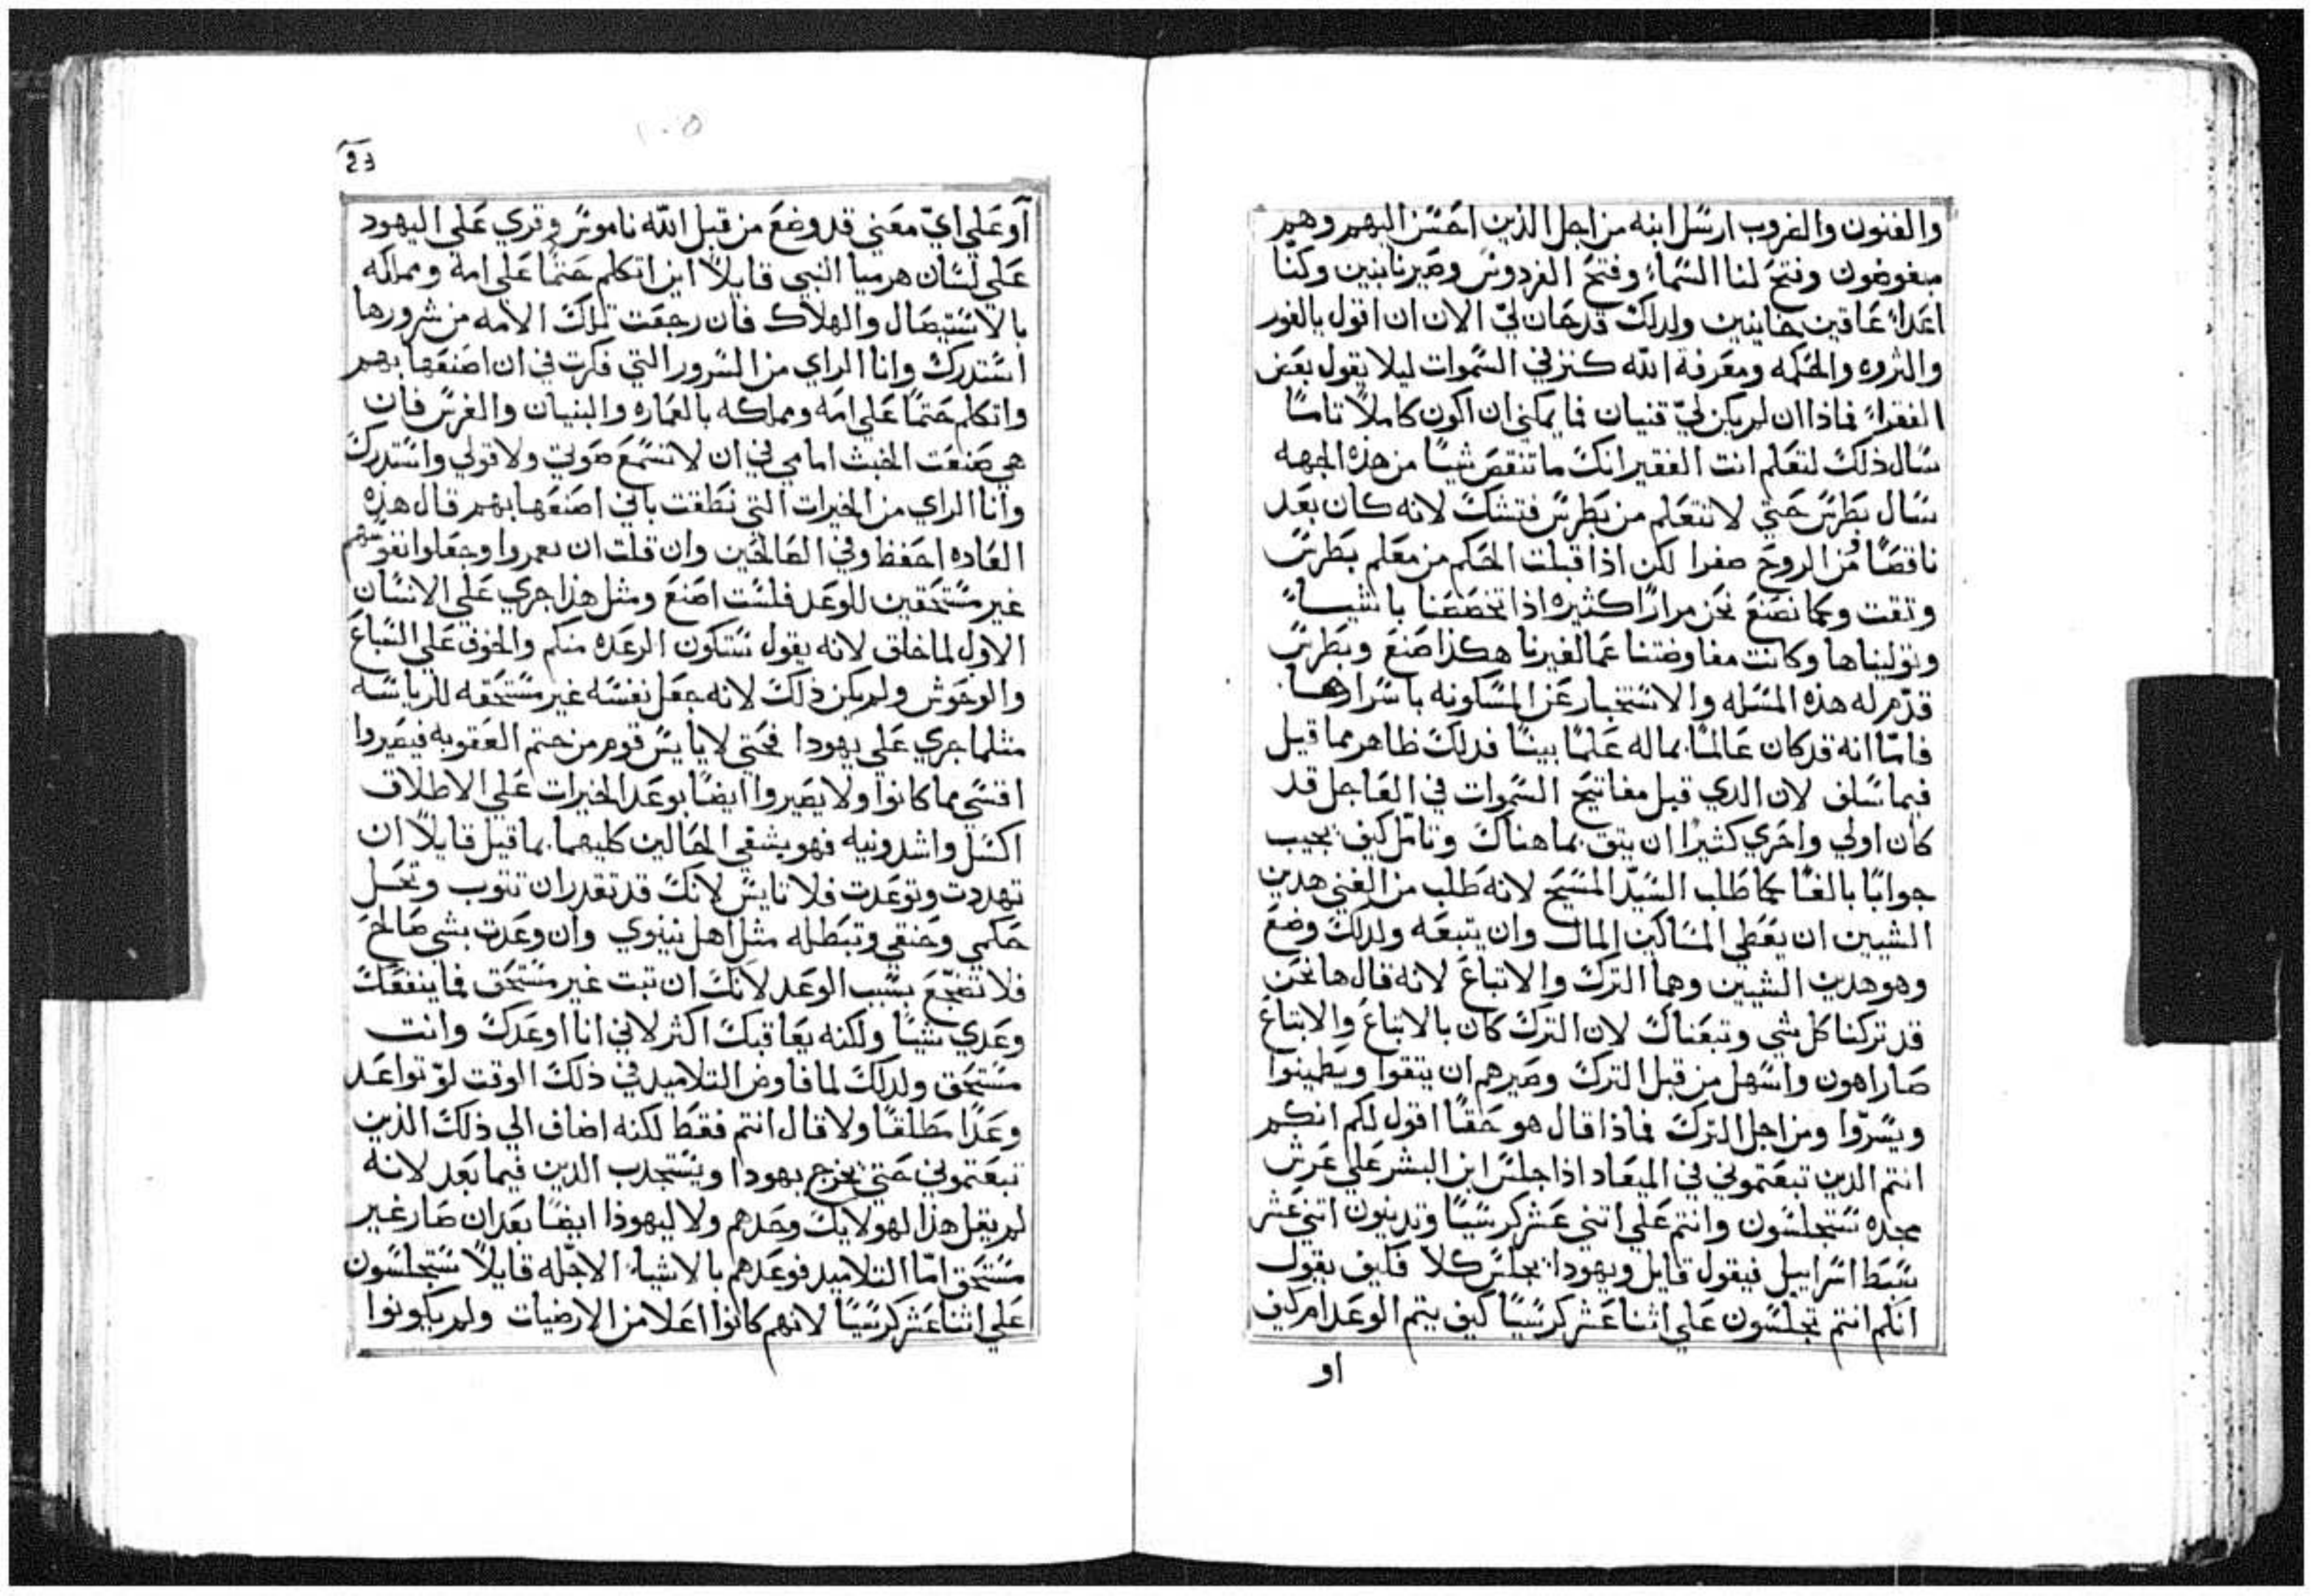 والفنون والضروب ارسل ابنه من اجل الذين احسن اليهم وهم
مبغوضون وفتح لنا السماء وفتح الفردوس وصيرنا بنين وكنا
اعداء عاقين خاينين ولدلك قد حان لي الان ان اقول بالغور
والثروه والحكمه ومعرفة الله كنز في السموات ليلا يقول بعض
الفقراء فماذا ان لم يكن لي قنيان فما يمكني ان اكون كاملا تاما
سال ذلك لتعلم انت الفقير انك ما تنقص شيا من هذه الجهه
سال بطرس حتي لا تتعلم من بطرس فتشك لانه كان بعد
ناقصا من الروح صفرا لكن اذا قبلت الحكم من معلم بطرس
وثقت وكما نصنع نحن مرارا كثيره اذا تخصصنا باشياء
وتوليناها وكانت مفاوضتنا عما لغيرنا هكذا صنع وبطرس
قدم له هذه المسله والاستخبار عن المسكونه باسرارها
فاما انه قد كان عالما بماله علما بينا فدلك ظاهر مما قيل
فيما سلف لان الدي قبل مفاتيح السموات في العاجل قد
كان اولي واحري كثيرا ان يثق بما هناك وتامل كيف يجيب
جوابا بالغا كما طلب السيد المسيح لانه طلب من الغني هدين
الشيين ان يعطي المساكين المال وان يتبعه ولدلك وضع
وهو هدين الشيين وهما الترك والاتباع لانه قال ها نحن
قد تركنا كل شي وتبعناك لان الترك كان بالاتباع والاتباع
صار اهون واسهل من قبل الترك وصيرهم ان يثقوا ويطمينوا
ويسروا ومن اجل الترك فماذا قال هو حقا اقول لكم انكم
انتم الدين تبعتموني في الميعاد اذا جلس ابن البشر علي عرش
مجده ستجلسون وانتم علي اثني عشر كرسيا وتدينون اثني عشر
سبط اسراييل فيقول قايل ويهودا يجلس كلا فكيف يقول
انكم انتم تجلسون علي اثنا عشر كرسيا كيف يتم الوعد ام كيف
او
١٠٥
او علي اي معني قد وضع من قبل الله ناموس وقري علي اليهود
علي لسان هرميا النبي قايلا اين اتكلم حتما علي امة ومملكه
بالاستيصال والهلاك فان رجعت تلك الامه من شرورها
استدرك وانا الراي من السرور التي فكرت في ان اصنعها بهم
واتكلم حتما علي امه ومملكه بالعماره والبنيان والغرس فان
هي صنعت الخبث امامي في ان لا تسمع صوتي ولا قولي واستدرك
وانا الراي من الخيرات التي نطقت باني اصنعها بهم قال هذه
العاده احفظ وفي الصالحين وان قلت ان يعمروا وجعلوا نفوسهم
غير مستحقين للوعد فلست اصنع ومثل هذا جري علي الانسان
الاول لما خلق لانه يقول ستكون الرعده منكم والخوف علي السباع
والوحوش ولم يكن ذلك لانه جعل نفسه غير مستحقه للرياسه
مثلما جري علي يهودا فحتي لا يايس قوم من حتم العقوبه فيصيروا
اقسي مما كانوا ولا يصيروا ايضا بوعد الخيرات علي الاطلاق
اكسل واشد ونيه فهو يشفي الحالين كليهما بما قيل قايلا ان
تهددت وتوعدت فلا تايس لانك قد تقدر ان تتوب وتحل
حكمي وحنقي وتبطله مثل اهل نينوي وان وعدت بشي صالح
فلا تضجع بسبب الوعد لانك ان تبت غير مستحق فما ينفعك
وعدي شيا ولكنه يعاقبك اكثر لاني انا اوعدك وانت
مستحق ولدلك لما فاوض التلاميد في ذلك الوقت لو تواعد
وعدا مطلقا ولا قال انتم فقط لكنه اضاف الي ذلك الذين
تبعتموني حتي يخرج يهودا ويستجدب الدين فيما بعد لانه
لم يقل هذا لهولايك وحدهم ولا ليهوذا ايضا بعد ان صار غير
مستحق اما التلاميد فوعدهم بالاشياء الاجله قايلا ستجلسون
علي اثنا عشر كرسيا لانهم كانوا اعلا من الارضيات ولم يكونوا